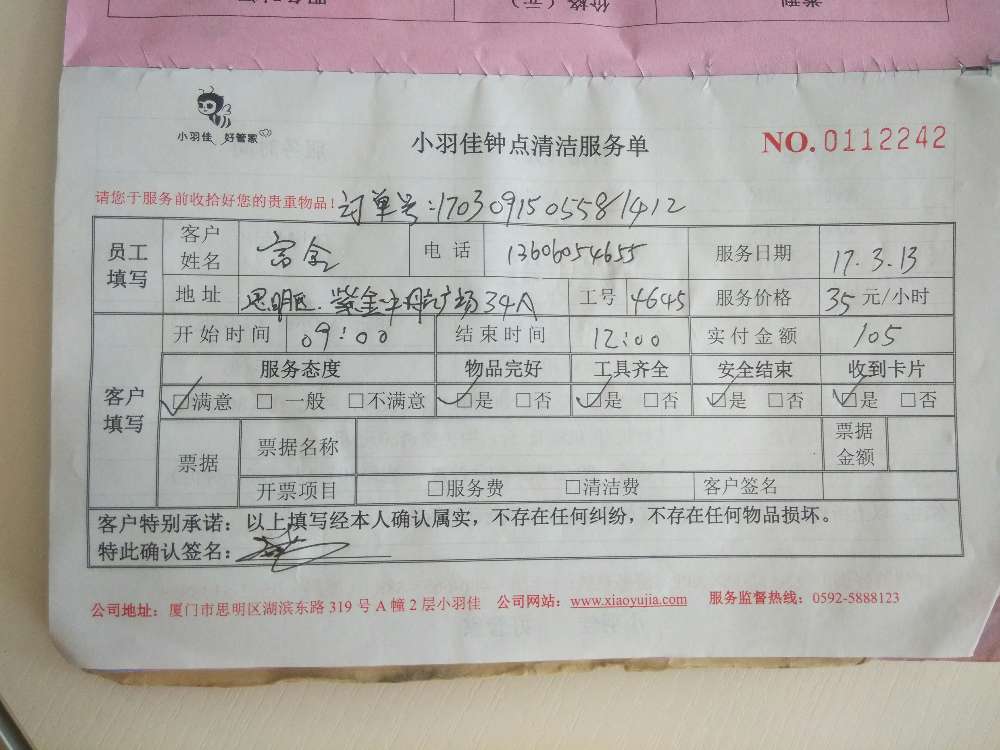 价格（元）
类型
小羽佳 好管家
小羽佳钟点清洁服务单
NO. 0112242
请您于服务前收拾好您的贵重物品！
订单号：1703091505581412
员工填写
客户姓名
电话 13606054655
服务日期 17.3.13
地址 思明区.紫金中航广场34A
工号 4645
服务价格 35 元/小时
客户填写
开始时间 09:00
结束时间 12:00
实付金额 105
服务态度 物品完好 工具齐全 安全结束 收到卡片
☑满意 □一般 □不满意 ☑是 □否 ☑是 □否 ☑是 □否 ☑是 □否
票据
票据名称
票据金额
开票项目 □服务费 □清洁费 客户签名
客户特别承诺：以上填写经本人确认属实，不存在任何纠纷，不存在任何物品损坏。
特此确认签名：
公司地址：厦门市思明区湖滨东路 319 号 A 幢 2 层小羽佳 公司网站：www.xiaoyujia.com 服务监督热线：0592-5888123